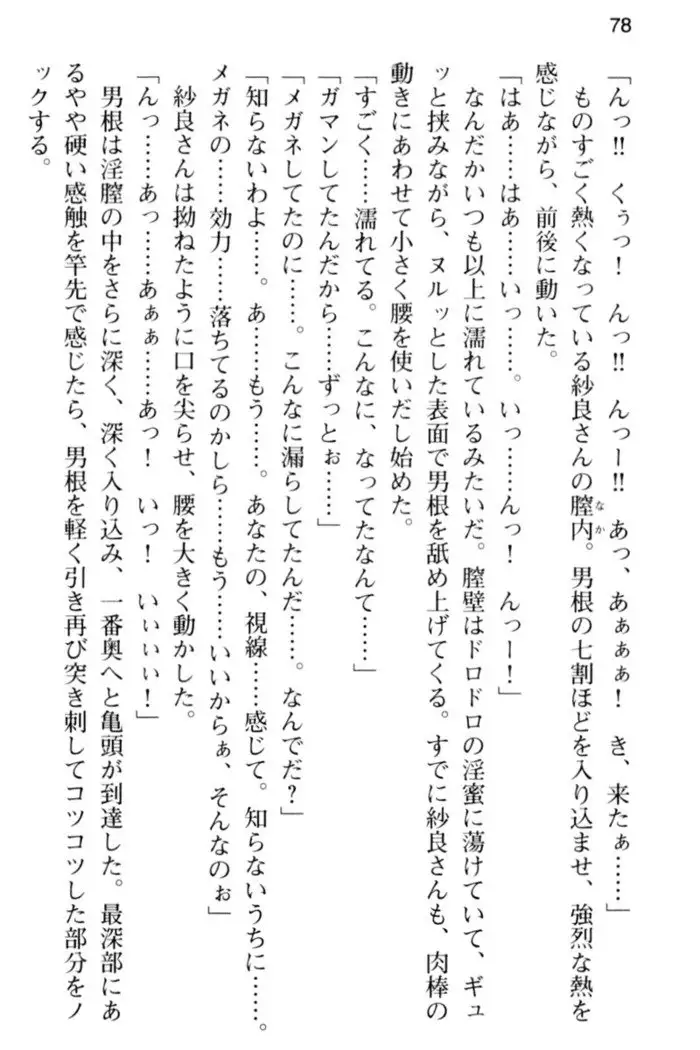 78
「んっ!! くぅっ! んっ!! んっー!! あっ、あぁぁぁ! き、来たぁ……」
ものすごく熱くなっている紗良さんの膣内なか。男根の七割ほどを入り込ませ、強烈な熱を
感じながら、前後に動いた。
「はあ……はあ……いっ……。いっ……んっ! んっー!」
なんだかいつも以上に濡れているみたいだ。膣壁はドロドロの淫蜜に蕩けていて、ギュ
ッと挟みながら、ヌルッとした表面で男根を舐め上げてくる。すでに紗良さんも、肉棒の
動きにあわせて小さく腰を使いだし始めた。
「すごく……濡れてる。こんなに、なってたなんて……」
「ガマンしてたんだから……ずっとぉ……」
「メガネしてたのに……。こんなに漏らしてたんだ……。なんでだ?」
「知らないわよ……。あ……もう……。あなたの、視線……感じて。知らないうちに……。
メガネの……効力……落ちてるのかしら……もう……いいからぁ、そんなのぉ」
紗良さんは拗ねたように口を尖らせ、腰を大きく動かした。
「んっ……あっ……あぁぁ……あっ! いっ! いぃぃぃ!」
男根は淫膣の中をさらに深く、深く入り込み、一番奥へと亀頭が到達した。最深部にあ
るやや硬い感触を竿先で感じたら、男根を軽く引き再び突き刺してコツコツした部分をノ
ックする。